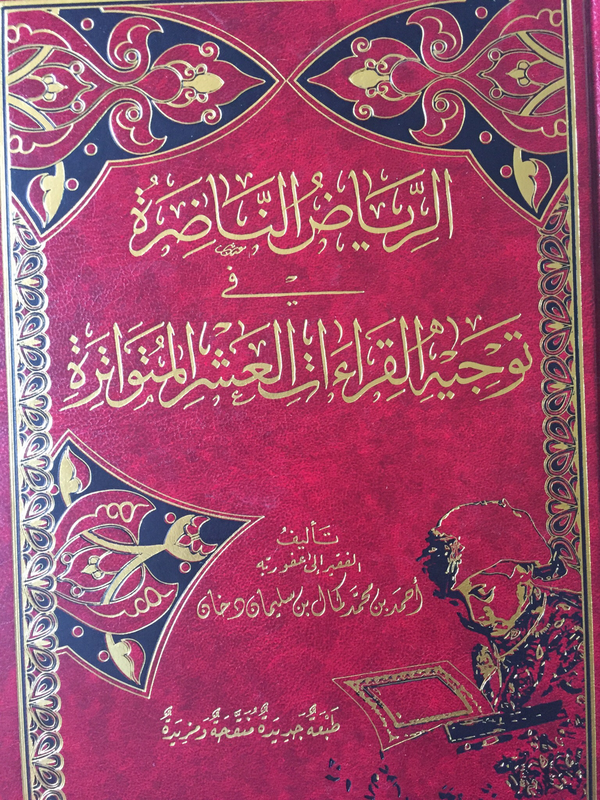 الرِّيَاضُ النَّاضِرَةُ
في
تَوْجِيْهِ القِرَاءَاتِ العَشْرِ المُتَوَاتِرَةِ
تأليفُ
الفقير إلى عفو ربّه
أحمد بن محمّد كمال بن سليمان دخان
طَبْعَةٌ جَدِيْدَةٌ مُنَقَّحَةٌ وَمَزِيْدَةٌ